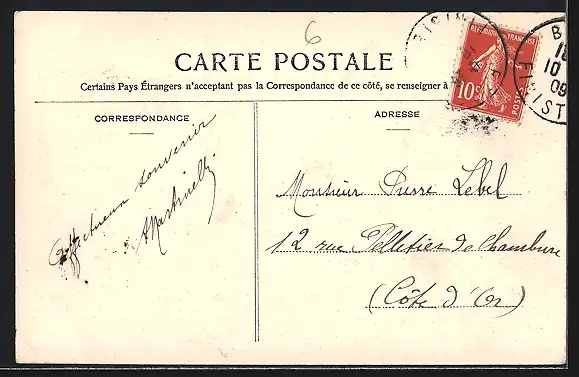 6
CARTE POSTALE
Certains Pays Étrangers n'acceptant pas la Correspondance de ce côté, se renseigner à
CORRESPONDANCE
ADRESSE
REPUBLIQUE FRANÇAISE
10c
POSTES
FINIST
10
09
Affectueux souvenir
Martinelli
Monsieur Pierre Lebel
12 rue Pelletier de Chambure
(Côte d'Or)